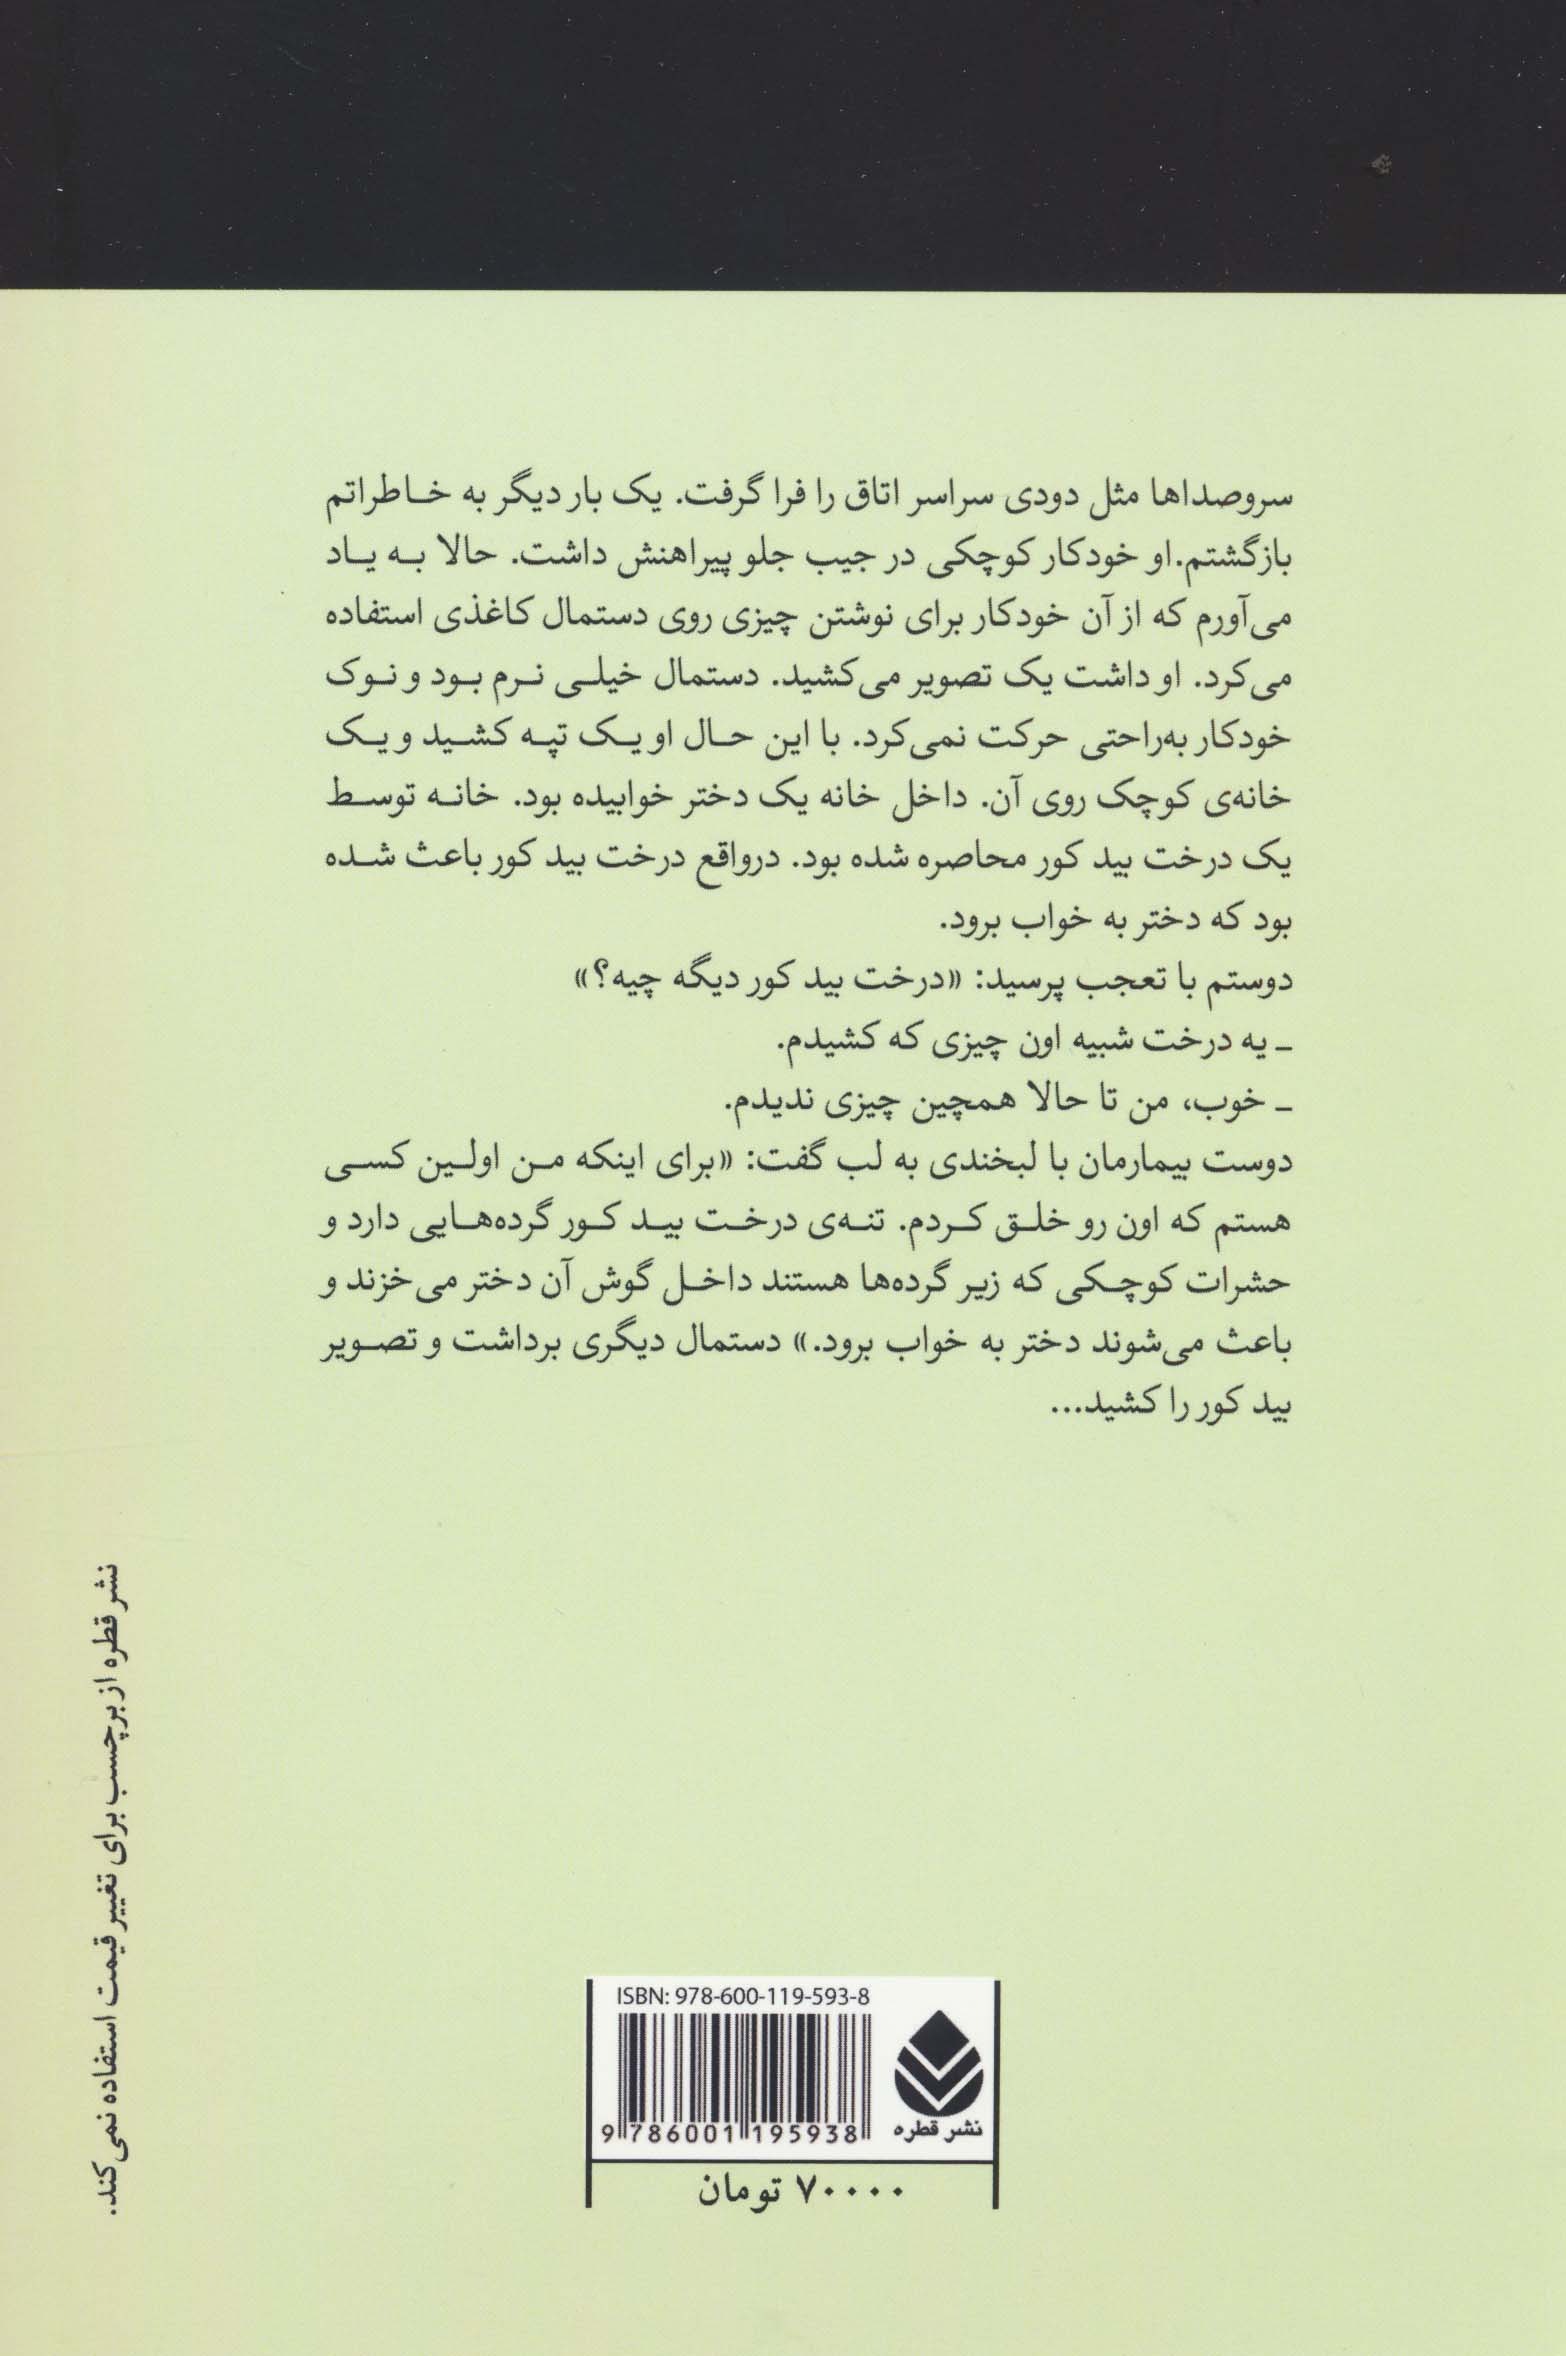 سروصداها مثل دودی سراسر اتاق را فرا گرفت. یک بار دیگر به خاطراتم
بازگشتم.او خودکار کوچکی در جیب جلو پیراهنش داشت. حالا به یاد
می‌آورم که از آن خودکار برای نوشتن چیزی روی دستمال کاغذی استفاده
می‌کرد. او داشت یک تصویر می‌کشید. دستمال خیلی نرم بود و نوک
خودکار به‌راحتی حرکت نمی‌کرد. با این حال او یک تپه کشید و یک
خانه‌ی کوچک روی آن. داخل خانه یک دختر خوابیده بود. خانه توسط
یک درخت بید کور محاصره شده بود. درواقع درخت بید کور باعث شده
بود که دختر به خواب برود.
دوستم با تعجب پرسید: «درخت بید کور دیگه چیه؟»
ـ یه درخت شبیه اون چیزی که کشیدم.
ـ خوب، من تا حالا همچین چیزی ندیدم.
دوست بیمارمان با لبخندی به لب گفت: «برای اینکه من اولین کسی
هستم که اون رو خلق کردم. تنه‌ی درخت بید کور گرده‌هایی دارد و
حشرات کوچکی که زیر گرده‌ها هستند داخل گوش آن دختر می‌خزند و
باعث می‌شوند دختر به خواب برود.» دستمال دیگری برداشت و تصویر
بید کور را کشید...
نشر قطره از برچسب برای تغییر قیمت استفاده نمی‌کند.
ISBN: 978-600-119-593-8
9 786001 195938
نشر قطره
۷۰۰۰۰ تومان